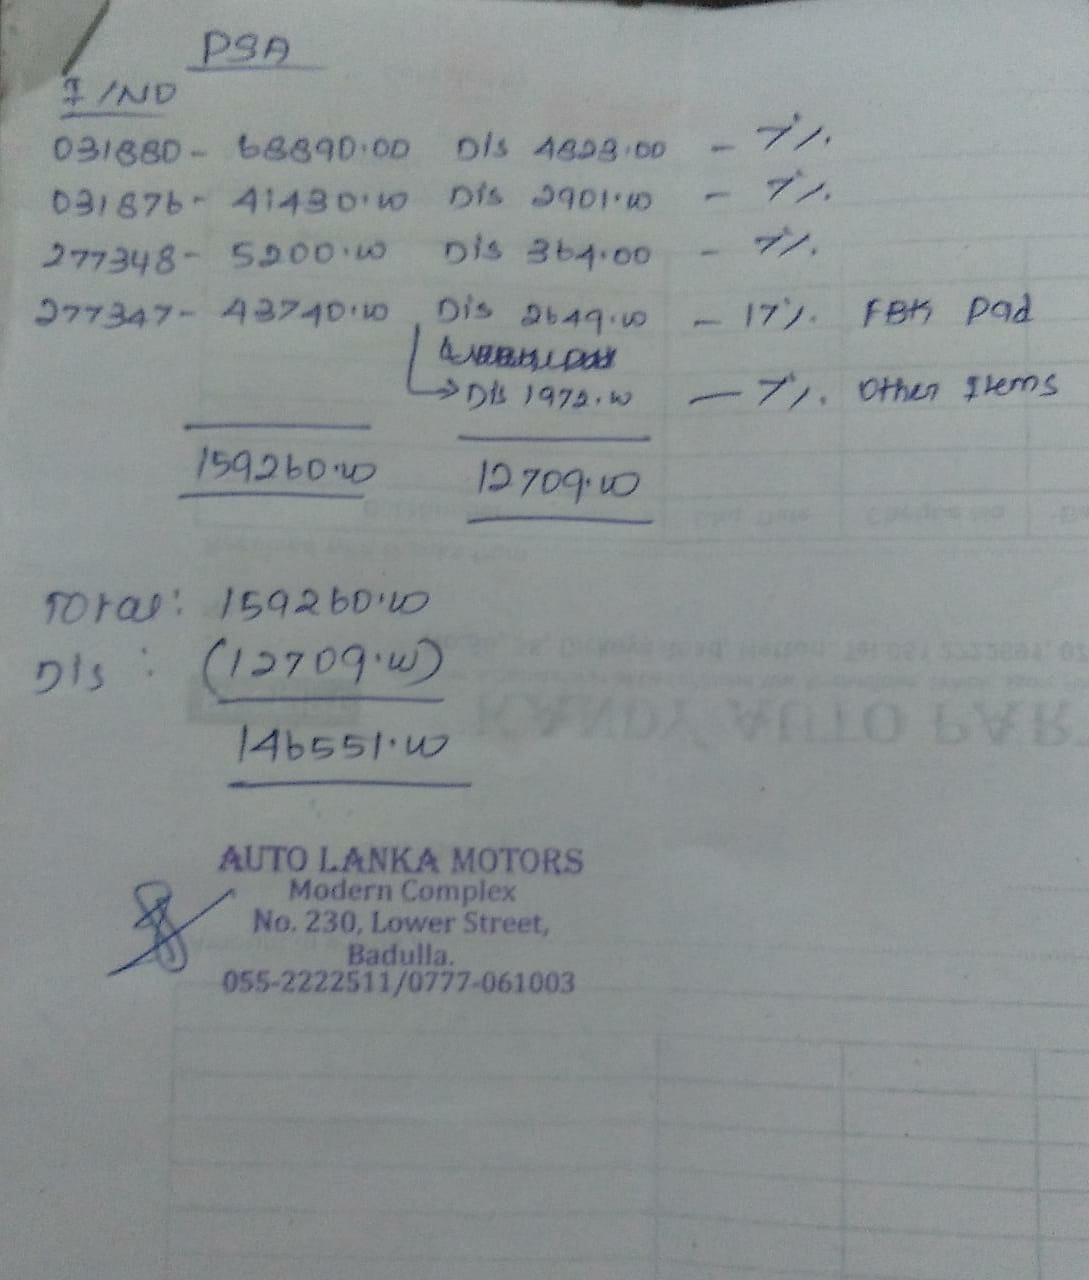 PSA
I/NO
031880 - 68890.00 Dis 4823.00 - 7%.
031876 - 41430.00 Dis 2901.00 - 7%.
277348 - 5200.00 Dis 364.00 - 7%.
277347 - 43740.00 Dis 2649.00 - 17%. FBK Pad
→ Dis 1972.00 - 7%. Other Items
159260.00 12709.00
Total: 159260.00
Dis : (12709.00)
146551.00
AUTO LANKA MOTORS
Modern Complex
No. 230, Lower Street,
Badulla.
055-2222511/0777-061003